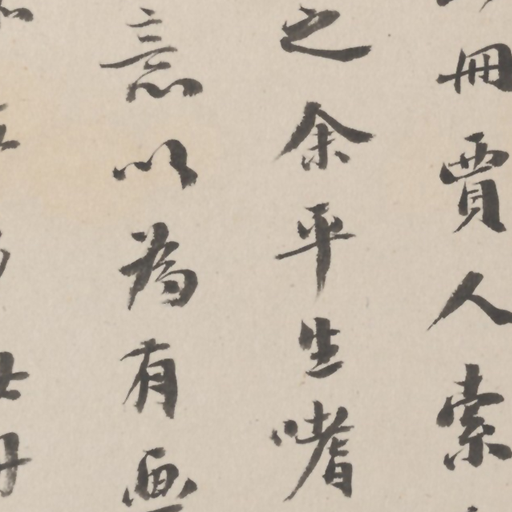 冊賈人索
之余平生嗜
意以為有画